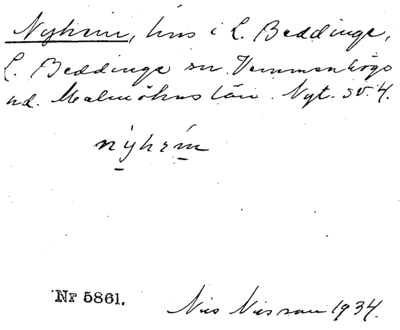 Nyhem, hus i L. Beddinge,
L. Beddinge sn Vemmenhögs
hd. Malmöhus län. Nyt. sv. 4.
nýhèm
Nr 5861.
Nils Nilsson 1934.